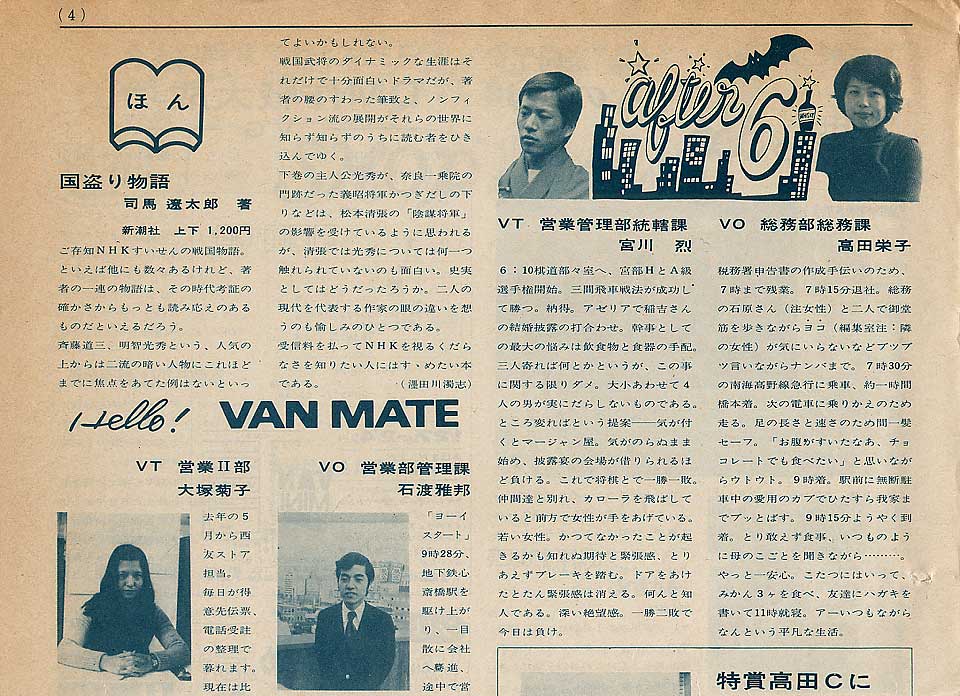 (4)
ほん
国盗り物語
司馬 遼太郎 著
新潮社 上下 1,200円
ご存知NHKすいせんの戦国物語。
といえば他にも数々あるけれど、著
者の一連の物語は、その時代考証の
確かさからもっとも読み応えのある
ものだといえるだろう。
斉藤道三、明智光秀という、人気の
上からは二流の暗い人物にこれほど
までに焦点をあてた例はないといっ
てよいかもしれない。
戦国武将のダイナミックな生涯はそ
れだけで十分面白いドラマだが、著
者の腰のすわった筆致と、ノンフィ
クション流の展開がそれらの世界に
知らず知らずのうちに読む者をひき
込んでゆく。
下巻の主人公光秀が、奈良一乗院の
門跡だった義昭将軍かつぎだしの下
りなどは、松本清張の「陰謀将軍」
の影響を受けているように思われる
が、清張では光秀については何一つ
触れられていないのも面白い。史実
としてはどうだったろうか。二人の
現代を代表する作家の眼の違いを想
うのも愉しみのひとつである。
受信料を払ってNHKを視るくだら
なさを知りたい人にはすゝめたい本
である。 (濹田川濁志)
Hello! VAN MATE
VT 営業II部
大塚菊子
去年の5
月から西
友ストア
担当。
毎日が得
意先伝票、
電話受註
の整理で
暮れます。
現在は比
VO 営業部管理課
石渡雅邦
「ヨーイ
スタート」
9時28分、
地下鉄心
斎橋駅を
駆け上が
り、一目
散に会社
へ驀進、
途中で営
after 6
WHISKY
VT 営業管理部統轄課
宮川 烈
6：10棋道部々室へ、宮部HとA級
選手権開始。三間飛車戦法が成功し
て勝つ。納得。アゼリアで稲吉さん
の結婚披露の打合わせ。幹事として
の最大の悩みは飲食物と食器の手配。
三人寄れば何とかというが、この事
に関する限りダメ。大小あわせて4
人の男が実にだらしないものである。
ところ変ればという提案──気が付
くとマージャン屋。気がのらぬまま
始め、披露宴の会場が借りられるほ
ど負ける。これで将棋とで一勝一敗。
仲間達と別れ、カローラを飛ばして
いると前方で女性が手をあげている。
若い女性。かつてなかったことが起
きるかも知れぬ期待と緊張感、とり
あえずブレーキを踏む。ドアをあけ
たとたん緊張感は消える。何んと知
人である。深い絶望感。一勝二敗で
今日は負け。
VO 総務部総務課
高田栄子
税務署申告書の作成手伝いのため、
7時まで残業。7時15分退社。総務
の石原さん（注女性）と二人で御堂
筋を歩きながらヨコ（編集室注：隣
の女性）が気にいらないなどブツブ
ツ言いながらナンバまで。7時30分
の南海高野線急行に乗車、約一時間
橋本着。次の電車に乗りかえのため
走る。足の長さと速さのため間一髪
セーフ。「お腹がすいたなあ、チョ
コレートでも食べたい」と思いなが
らウトウト。9時着。駅前に無断駐
車中の愛用のカブでひたすら我家ま
でブッとばす。9時15分ようやく到
着。とり敢えず食事、いつものよう
に母のこごとを聞きながら………。
やっと一安心。こたつにはいって、
みかん3ヶを食べ、友達にハガキを
書いて11時就寝。アーいつもながら
なんという平凡な生活。
特賞高田Cに